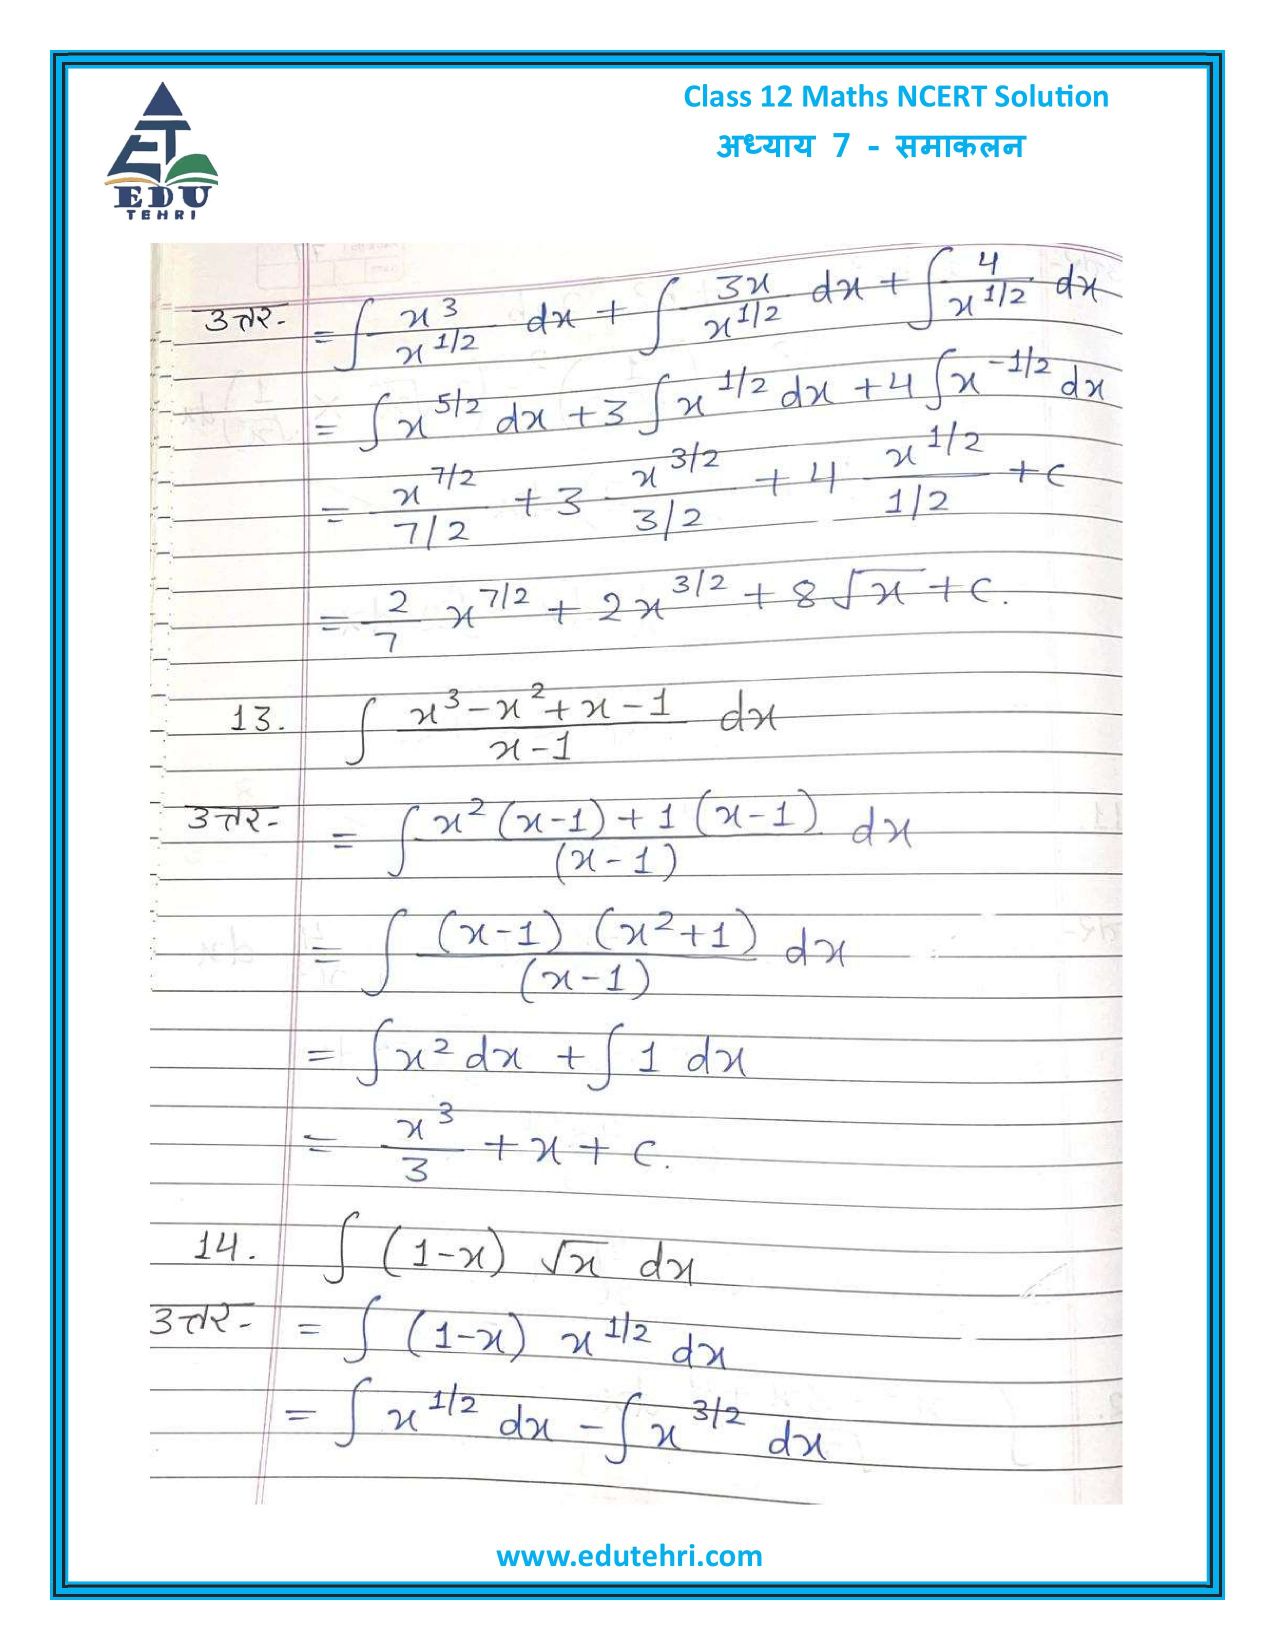 Class 12 Maths NCERT Solution
अध्याय 7 - समाकलन
ET
EDU
TEHRI
उत्तर- = ∫ x^3/x^1/2 dx + ∫ 3x/x^1/2 dx + ∫ 4/x^1/2 dx
= ∫ x^5/2 dx + 3 ∫ x^1/2 dx + 4 ∫ x^-1/2 dx
= x^7/2 / 7/2 + 3 x^3/2 / 3/2 + 4 x^1/2 / 1/2 + c
= 2/7 x^7/2 + 2x^3/2 + 8√x + c.
13. ∫ x^3-x^2+x-1 / x-1 dx
उत्तर- = ∫ x^2(x-1)+1(x-1) / (x-1) dx
= ∫ (x-1) (x^2+1) / (x-1) dx
= ∫ x^2 dx + ∫ 1 dx
= x^3/3 + x + c.
14. ∫ (1-x) √x dx
उत्तर- = ∫ (1-x) x^1/2 dx
= ∫ x^1/2 dx - ∫ x^3/2 dx
www.edutehri.com